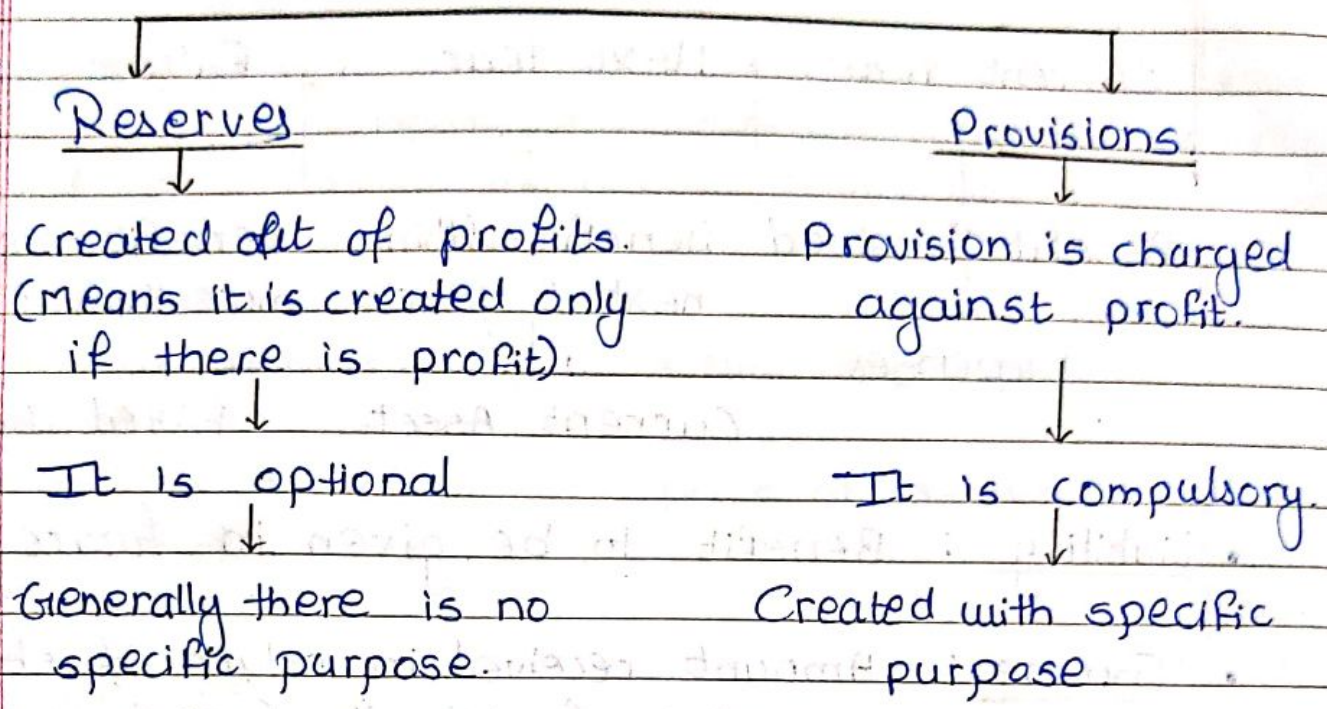 Reserves
Created out of profits.
(Means it is created only
if there is profit).
It is optional
Generally there is no
specific purpose.
Provisions.
Provision is charged
against profit.
It is compulsory.
Created with specific
purpose